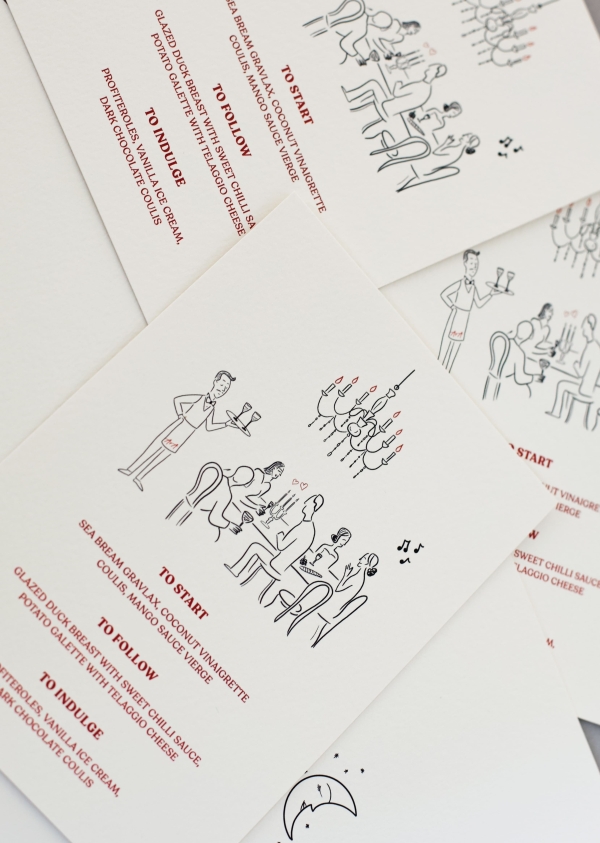 TO START
SEA BREAM GRAVLAX, COCONUT VINAIGRETTE
COULIS, MANGO SAUCE VIERGE
TO FOLLOW
GLAZED DUCK BREAST WITH SWEET CHILLI SA
POTATO GALETTE WITH TELAGGIO CHEESE
TO INDULGE
PROFITEROLES, VANILLA ICE CREAM,
DARK CHOCOLATE COULIS
TO START
SEA BREAM GRAVLAX, COCONUT VINAIGRETTE
COULIS, MANGO SAUCE VIERGE
TO FOLLOW
GLAZED DUCK BREAST WITH SWEET CHILLI SAUCE,
POTATO GALETTE WITH TELAGGIO CHEESE
TO INDULGE
OFITEROLES, VANILLA ICE CREAM,
ARK CHOCOLATE COULIS
O START
NUT VINAIGRE
IERGE
W
SWEET CHILLI SAUCE
LAGGIO CHEESE